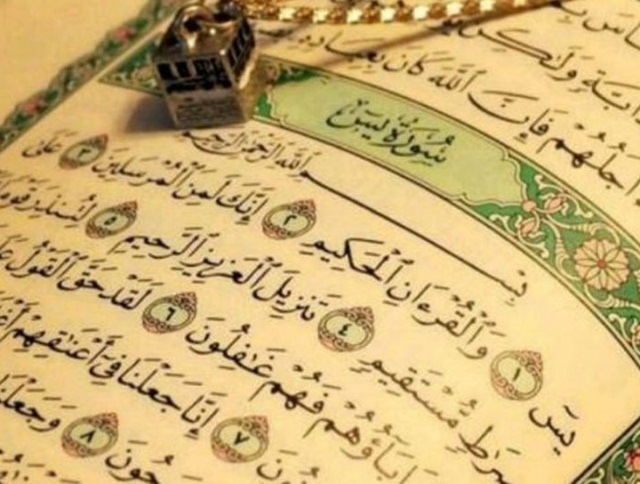 وَلَٰكِن
أَجَلُهُمْ فَإِنَّ ٱللَّهَ كَانَ بِعِبَادِهِ
سُورَةُ يسٓ
بِسْمِ ٱللَّهِ ٱلرَّحْمَٰنِ ٱلرَّحِيمِ
يسٓ ١ وَٱلْقُرْءَانِ ٱلْحَكِيمِ ٢ إِنَّكَ لَمِنَ ٱلْمُرْسَلِينَ ٣ عَلَىٰ
صِرَٰطٍ مُّسْتَقِيمٍ ٤ تَنزِيلَ ٱلْعَزِيزِ ٱلرَّحِيمِ ٥ لِتُنذِرَ قَوْمًا
ءَابَآؤُهُمْ فَهُمْ غَٰفِلُونَ ٦ لَقَدْ حَقَّ ٱلْقَوْلُ
٧ إِنَّا جَعَلْنَا فِىٓ أَعْنَٰقِهِمْ
٨ وَجَعَلْنَا